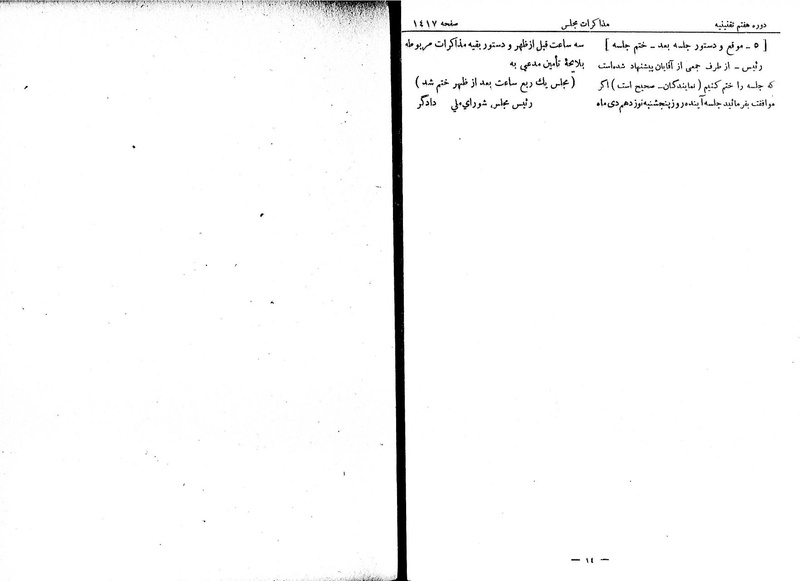 دوره هفتم تقنینیه
مذاکرات مجلس
صفحه ۱٤۱۷
[ ٥ ـ موقع و دستور جلسه بعد ـ ختم جلسه ]
رئیس ـ از طرف جمعی از آقایان پیشنهاد شده است
که جلسه را ختم کنیم ( نمایندگان ـ صحیح است ) اگر
موافقت بفرمائید جلسه آینده روز پنجشنبه نوزدهم دی ماه
سه ساعت قبل از ظهر و دستور بقیه مذاکرات مربوطه
بلایحهٔ تأمین مدعی به
( مجلس یك ربع ساعت بعد از ظهر ختم شد )
رئیس مجلس شورای ملی دادگر
— ۱٤ —